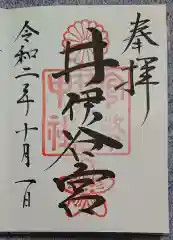 奉拝
井伊谷宮
令和二年十月一日